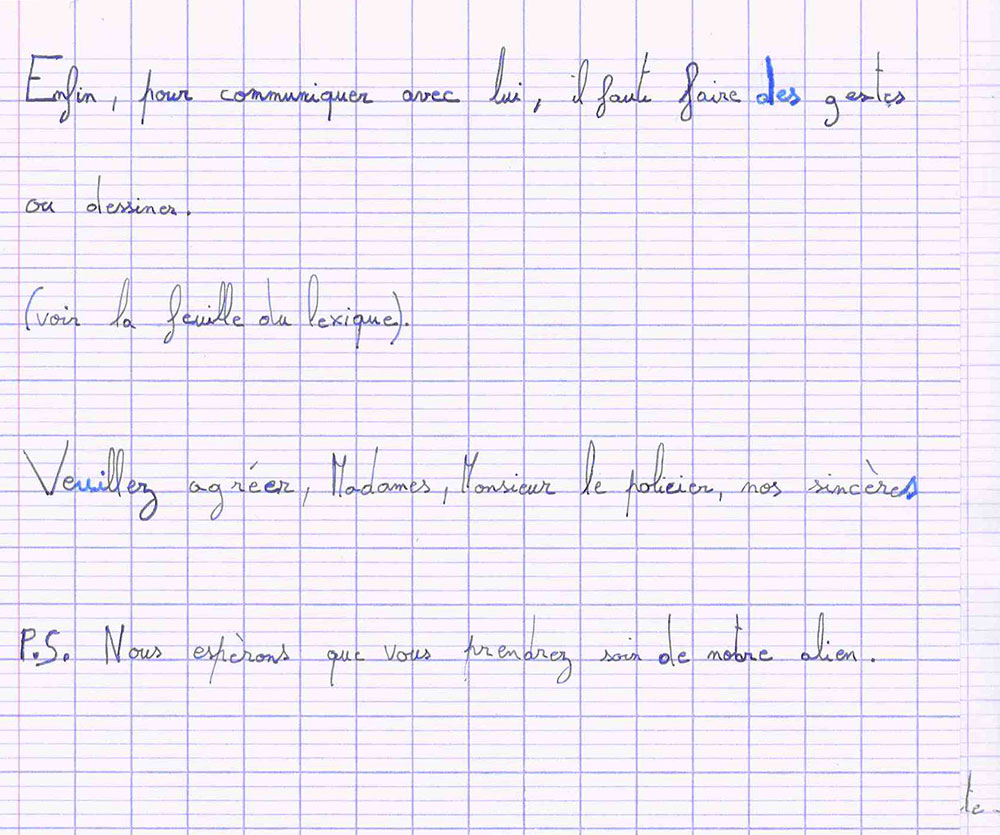 Enfin, pour communiquer avec lui, il faut faire des gestes
ou dessiner.
(voir la feuille du lexique).
Veuillez agréer, Madames, Monsieur le policier, nos sincères
P.S. Nous espèrons que vous prendrez soin de notre alien.
te